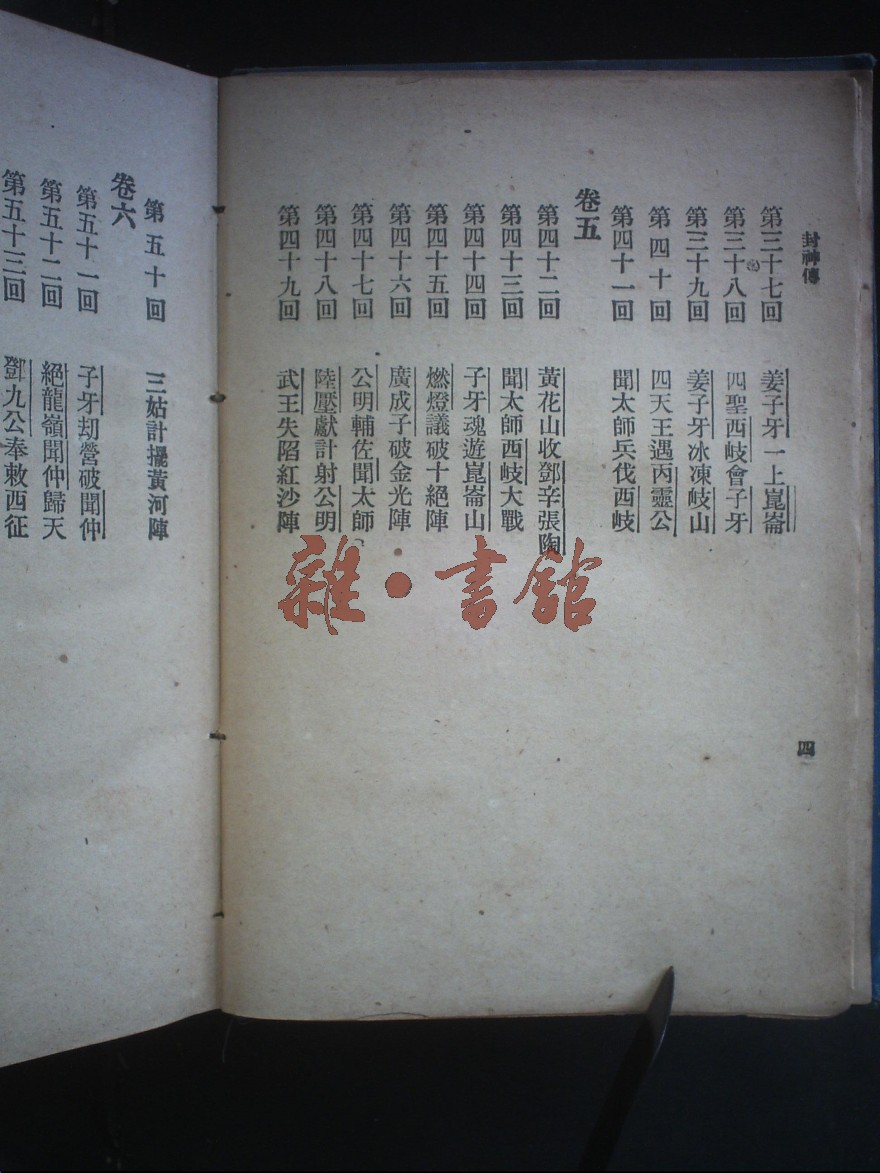 封神傳
第三十七回 姜子牙一上崑崙
第三十八回 四聖西岐會子牙
第三十九回 姜子牙冰凍岐山
第四十回 四天王遇丙靈公
第四十一回 聞太師兵伐西岐
卷五
第四十二回 黃花山收鄧辛張陶
第四十三回 聞太師西岐大戰
第四十四回 子牙魂遊崑崙山
第四十五回 燃燈議破十絕陣
第四十六回 廣成子破金光陣
第四十七回 公明輔佐聞太師
第四十八回 陸壓獻計射公明
第四十九回 武王失陷紅沙陣
四
第五十回 三姑計擺黃河陣
卷六
第五十一回 子牙劫營破聞仲
第五十二回 絕龍嶺聞仲歸天
第五十三回 鄧九公奉敕西征
雜·書館